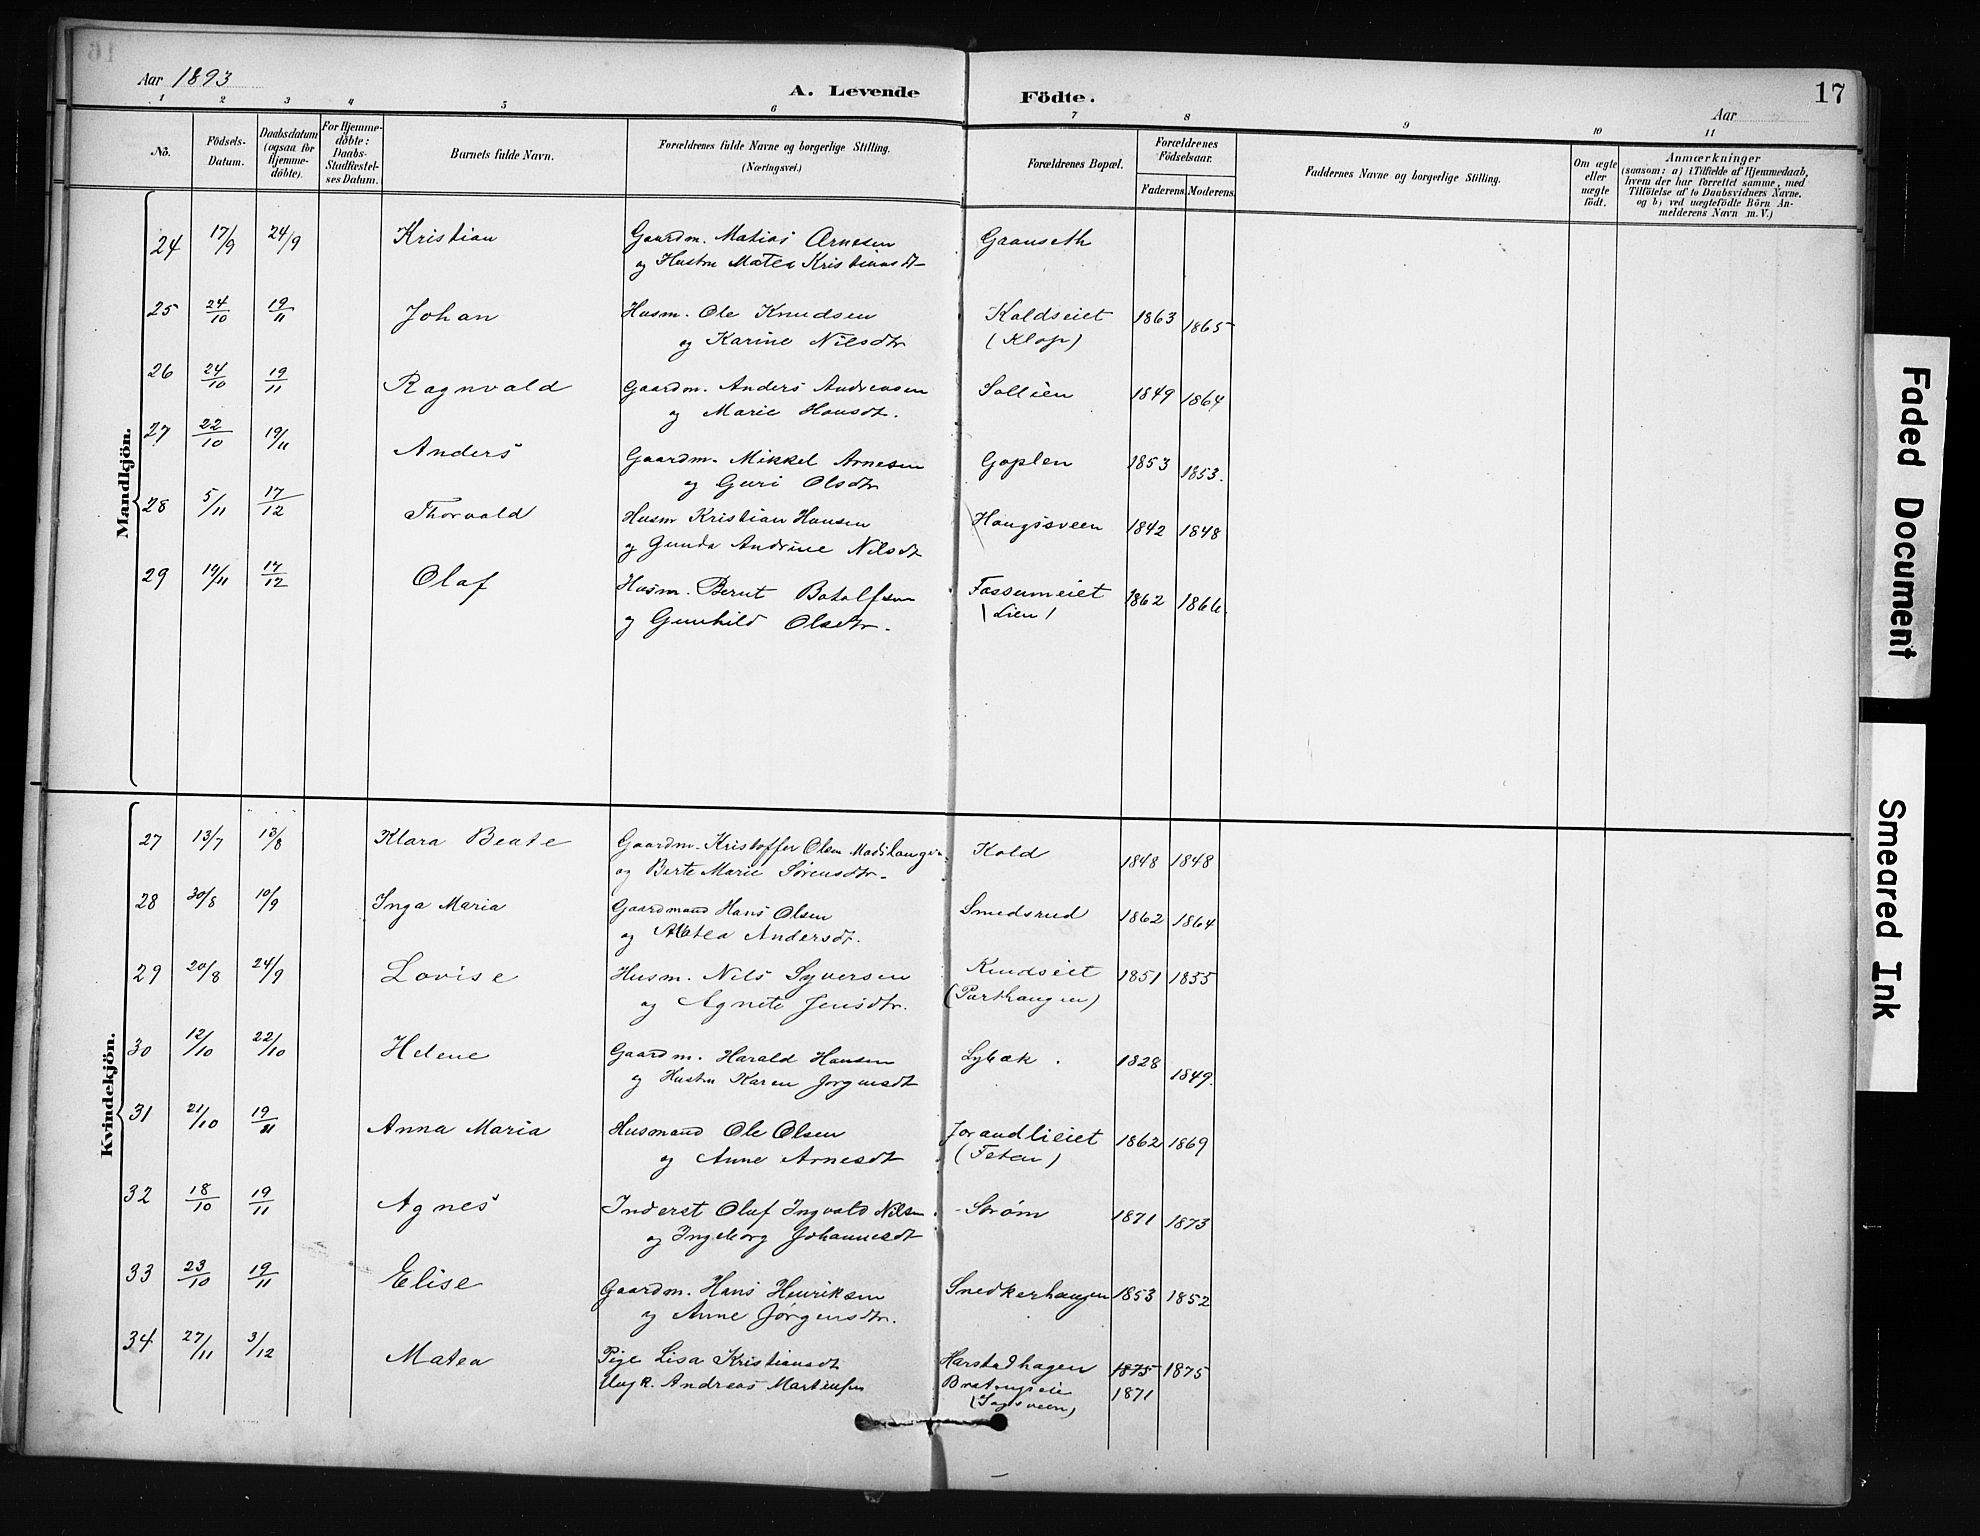 16
Aar 1893
A. Levende Födte.
Aar
17
1 2 3 4 5 6 7 8 9 10 11
No.
Födsels-Datum.
Daabsdatum (ogsaa for Hjemme-döbte).
For Hjemme-döbte: Daabs-Stadfæstel-ses Datum.
Barnets fulde Navn.
Forældrenes fulde Navne og borgerlige Stilling. (Næringsvei.)
Forældrenes Bopæl.
Forældrenes Födselsaar.
Faderens. Moderens.
Faddernes Navne og borgerlige Stilling.
Om ægte eller uægte födt.
Anmærkninger
(saasom: a) i Tilfælde af Hjemmedaab,
hvem der har forrettet samme, med
Tilföielse af to Daabsvidners Navne.
og b) ved uægtefödte Börn An-
melderens Navn m. V.)
Mandkjön.
24 17/9 24/9 Kristian Gaardm. Matias Arnesen Graanseth
og Hustru Matea Kristiansdt
25 24/10 19/11 Johan Husm. Ole Knudsen Koldseiet 1863 1865
og Karine Nilsdtr (Klop)
26 24/10 19/11 Ragnvald Gaardm. Anders Andreasen Sollien 1849 1864
og Marie Hansdt.
27 22/10 19/11 Anders Gaardm. Mikkel Arnesen Goplen 1853 1853.
og Guri Olsdtr
28 5/11 17/12 Thorvald Husm Kristian Hansen Haugsveen 1842 1848
og Gunda Andrine Nilsdt
29 19/11 17/12 Olaf Husm. Bernt Botolfsen Fossumeiet 1862 1866.
og Gunhild Olsdtr. (Lien)
Kvindekjön.
27 13/7 13/8 Klara Beate Gaardm. Kristoffer Olsen Madshaugen. Kold 1848 1848
og Berte Marie Sørensdtr.
28 30/8 10/9 Inga Maria Gaardmand Hans Olsen Smedsrud 1862 1864
og Matea Andersdt.
29 20/8 24/9 Lovise Husm. Nils Syversen Rudseiet 1851 1855
og Agnete Jensdtr. (Parthaugen)
30 12/10 22/10 Helene Gaardm. Harald Hansen Lybæk. 1828 1849.
og Hustru Karen Jørgensdt
31 21/10 19/11 Anna Maria Husmand Ole Olsen Jorandlieiet 1862 1869
og Anne Arnesdt (Feten)
32 18/10 19/11 Agnes Inderst Oluf Ingvald Nilsen Strøm 1871 1873
og Ingeborg Johannesdt
33 23/10 19/11 Elise Gaardm. Hans Henriksen Snedkerhaugen 1853 1852
og Anne Jørgensdtr.
34 27/11 3/12 Matea Pige Lisa Kristiansdt Harstadhagen 1875 1875
Ungk. Andreas Martinsen 1871
Faded Document
Smeared Ink